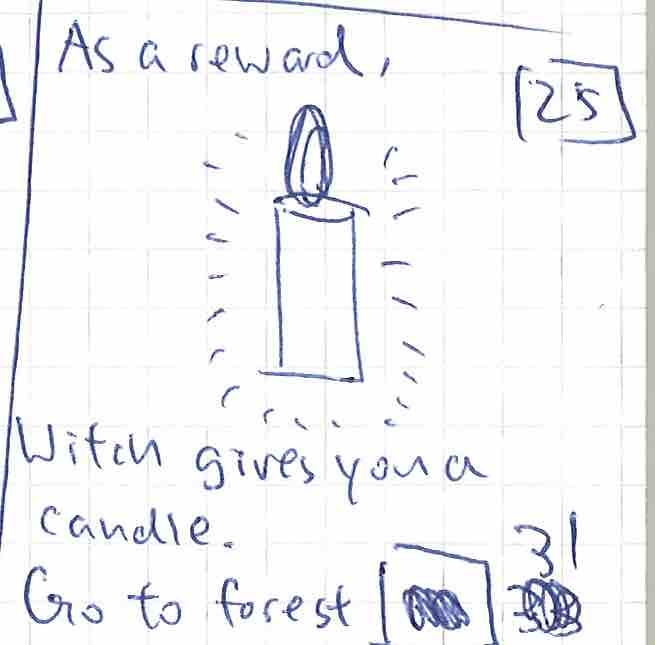 As a reward,
25
Witch gives you a
candle.
Go to forest 31